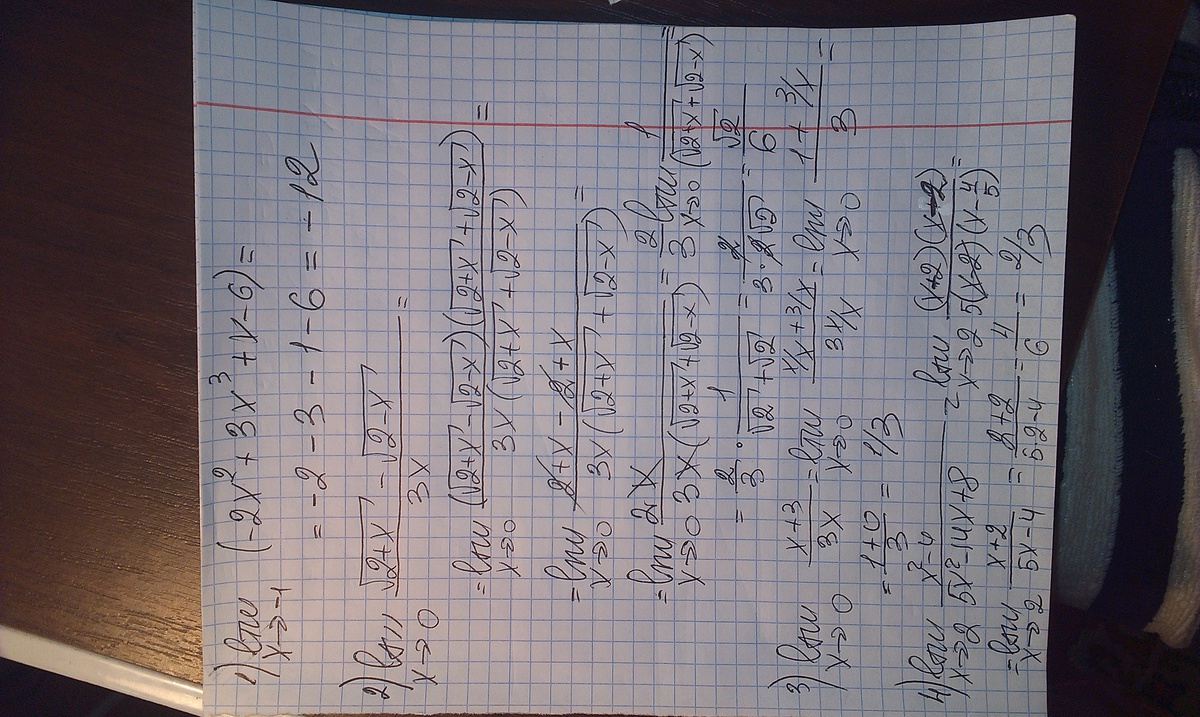 1) lim x→-1 (-2x² + 3x³ + x - 6) =
= -2 - 3 - 1 - 6 = -12
2) lim x→0 (√(2+x) - √(2-x)) / 3x =
= lim x→0 (√(2+x) - √(2-x))(√(2+x) + √(2-x)) / 3x(√(2+x) + √(2-x)) =
= lim x→0 (2+x - 2 + x) / 3x(√(2+x) + √(2-x)) =
= lim x→0 2x / 3x(√(2+x) + √(2-x)) = 2/3 lim x→0 1 / (√(2+x) + √(2-x)) =
= 2/3 · 1/(√2 + √2) = 2/(3·2√2) = √2/6
3) lim x→0 (x+3)/3x = lim x→0 (x/x + 3/x) / (3x/x) = lim x→0 (1 + 3/x) / 3 =
= (1+0)/3 = 1/3
4) lim x→2 (x²-4) / (5x²-14x+8) = lim x→2 (x+2)(x-2) / 5(x-2)(x-4/5) =
= lim x→2 (x+2)/(5x-4) = (2+2)/(5·2-4) = 4/6 = 2/3